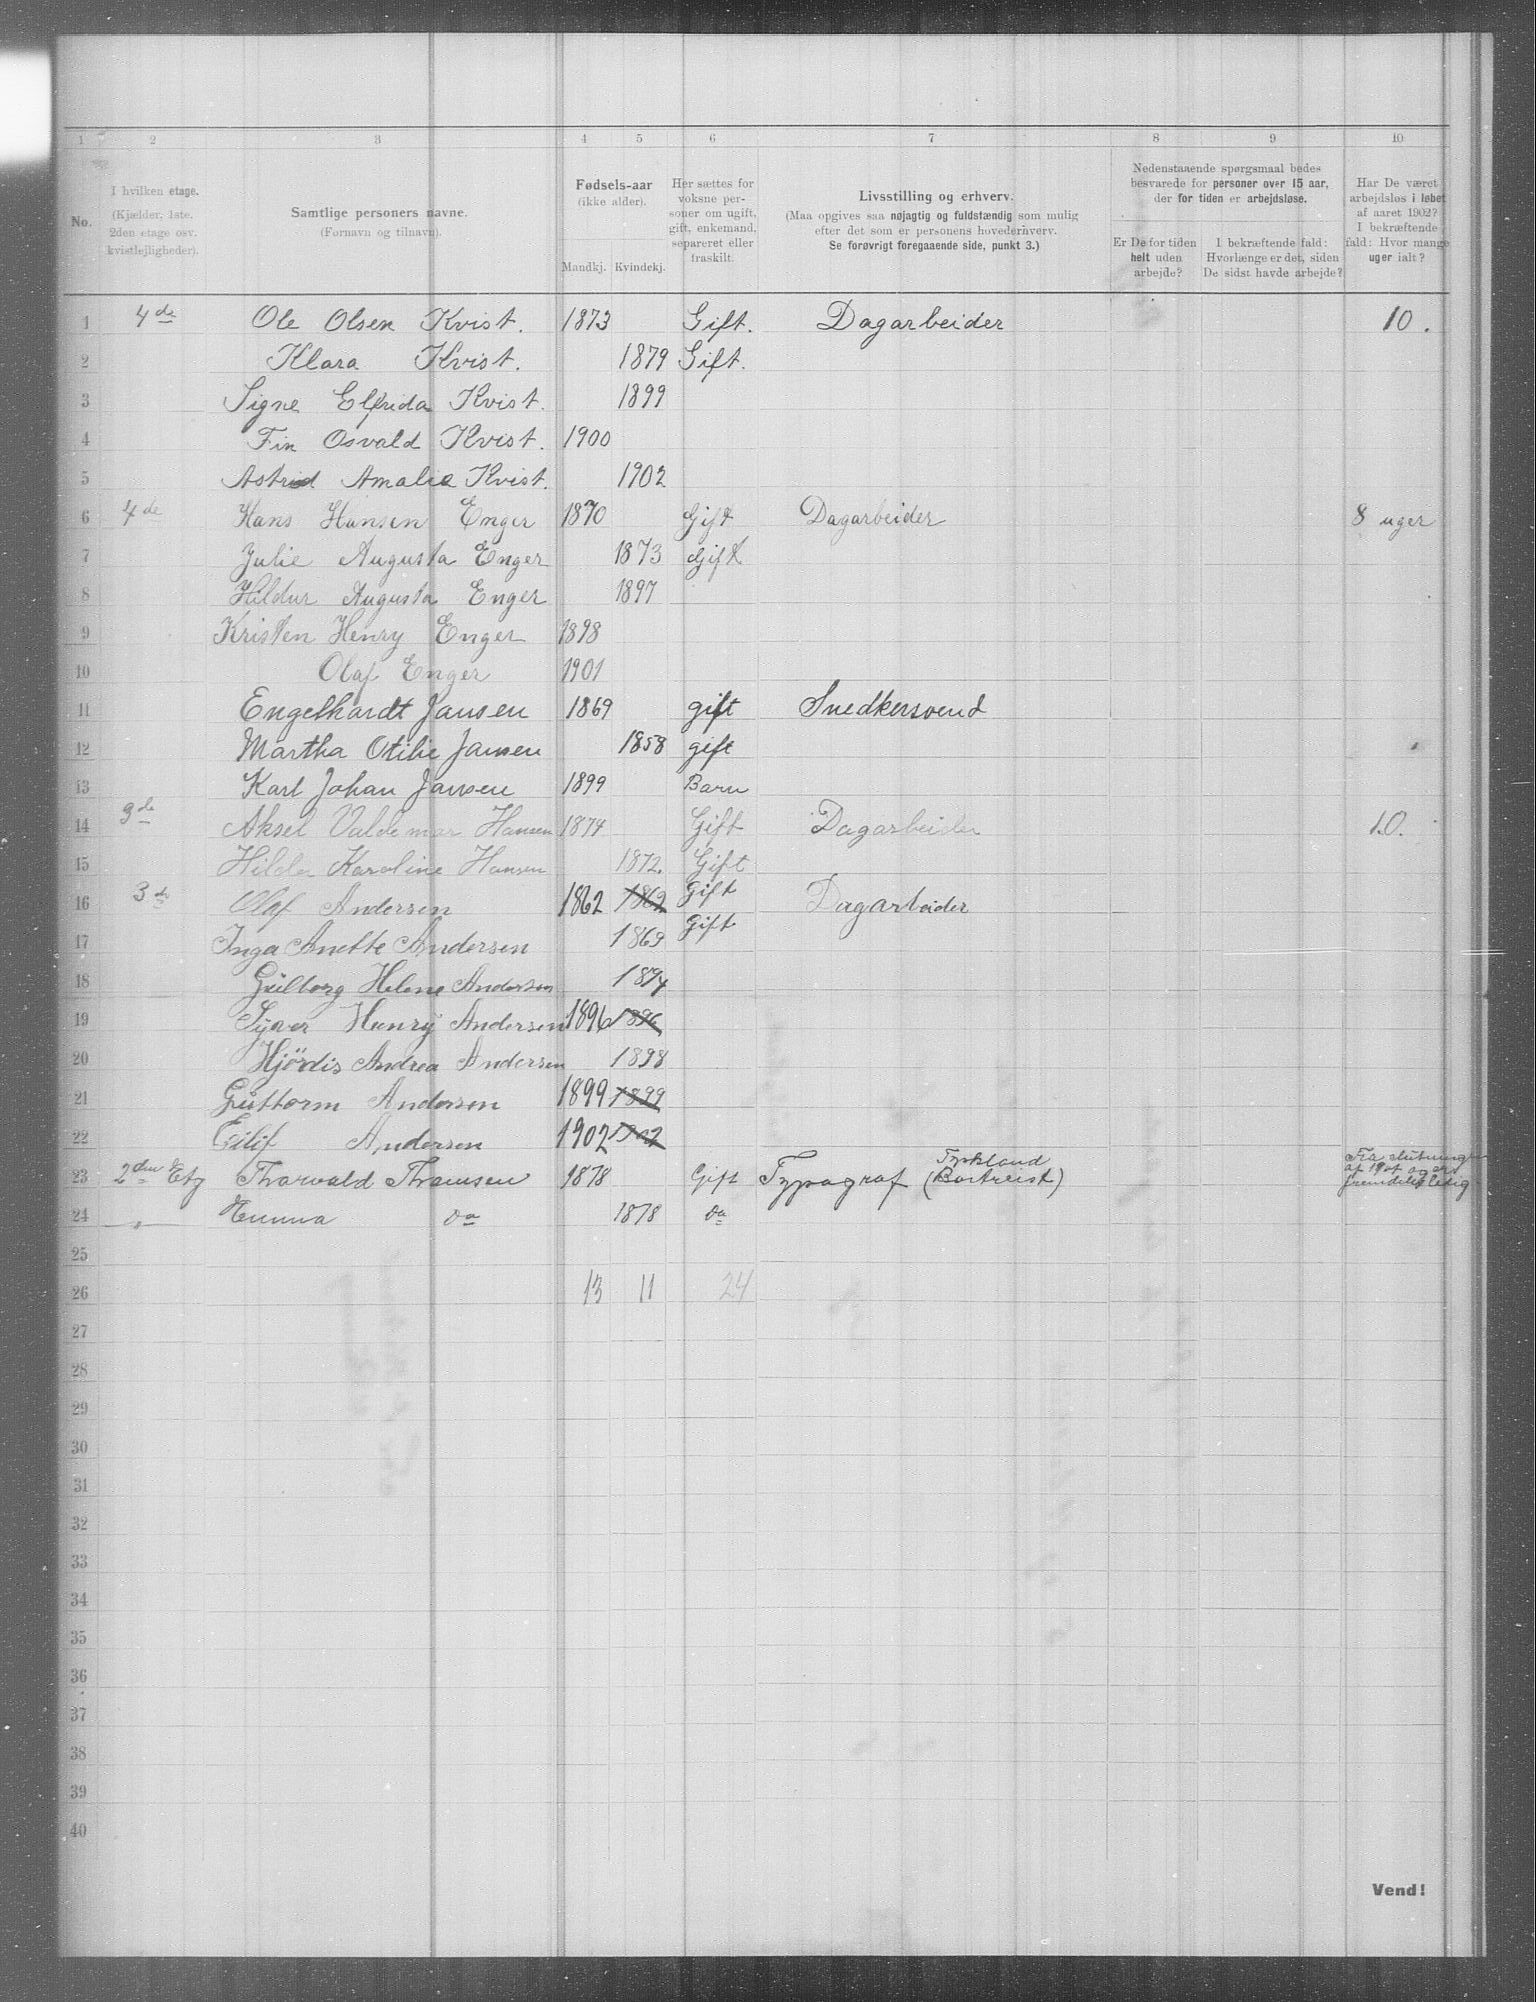 1 2 3 4 5 6 7 8 9 10
No.
I hvilken etage.
(Kjælder, 1ste.
2den etage osv.
kvistlejligheder).
Samtlige personers navne.
(Fornavn og tilnavn).
Fødsels-aar
(ikke alder).
Mandkj. Kvindekj.
Her sættes for
voksne per-
soner om ugift,
gift, enkemand,
separeret eller
fraskilt.
Livsstilling og erhverv.
(Maa opgives saa nøjagtig og fuldstændig som mulig
efter det som er personens hovederhverv.
Se forøvrigt foregaaende side, punkt 3.)
Nedenstaaende spørgsmaal bedes
besvarede for personer over 15 aar,
der for tiden er arbejdsløse.
Er De for tiden
helt uden
arbejde?
I bekræftende fald:
Hvorlænge er det, siden
De sidst havde arbejde?
Har De været
arbejdsløs i løbet
af aaret 1902?
I bekræftende
fald: Hvor mange
uger ialt?
1 4de Ole Olsen Kvist. 1873 Gift. Dagarbeider 10.
2 Klara Kvist. 1879 Gift.
3 Signe Elfrida Kvist. 1899
4 Fin Osvald Kvist. 1900
5 Astrid Amalie Kvist. 1902
6 4de Hans Hansen Enger 1870 Gift Dagarbeider 8 uger
7 Julie Augusta Enger 1873 Gift
8 Hildur Augusta Enger 1897
9 Kristen Henry Enger 1898
10 Olaf Enger 1901
11 Engelhardt Jansen 1869 gift Snedkersvend
12 Martha Otilie Jansen 1858 gift
13 Karl Johan Jansen 1899 Barn
14 3de Aksel Valdemar Hansen 1874 Gift Dagarbeider 10.
15 Hilda Karoline Hansen 1872. Gift
16 3de Olaf Andersen 1862 1862 Gift Dagarbeider
17 Inga Anette Andersen 1869 Gift
18 Guilborg Helene Andersen 1894
19 Syver Henry Andersen 1896 1896
20 Hjördis Andrea Andersen 1898
21 Guttorm Andersen 1899 1899
22 Eilif Andersen 1902 1902
23 2den Etg Thorvald Thomsen 1878 Gift Typograf Tyskland (Bortreist) Fra
24 " Emma do 1878 do
25
26 13 11 24
27
28
29
30
31
32
33
34
35
36
37
38
39
40
Vend!